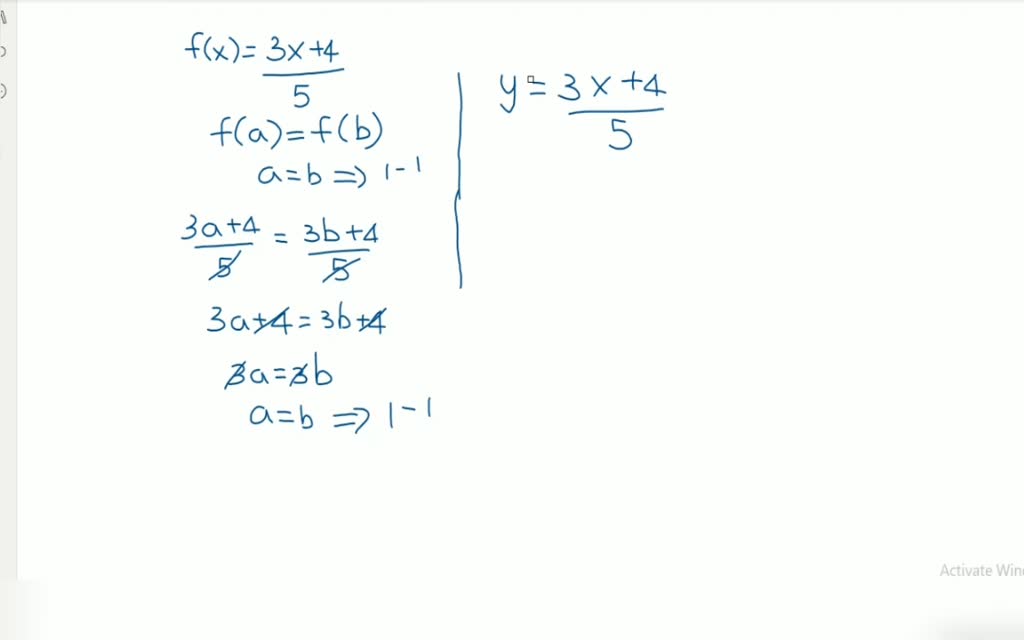 f(x)= 3x+4
5
f(a)=f(b)
a=b ⇒ 1-1
3a+4 = 3b+4
5 5
3a+4=3b+4
3a=3b
a=b ⇒ 1-1
y= 3x+4
5
Activate Win